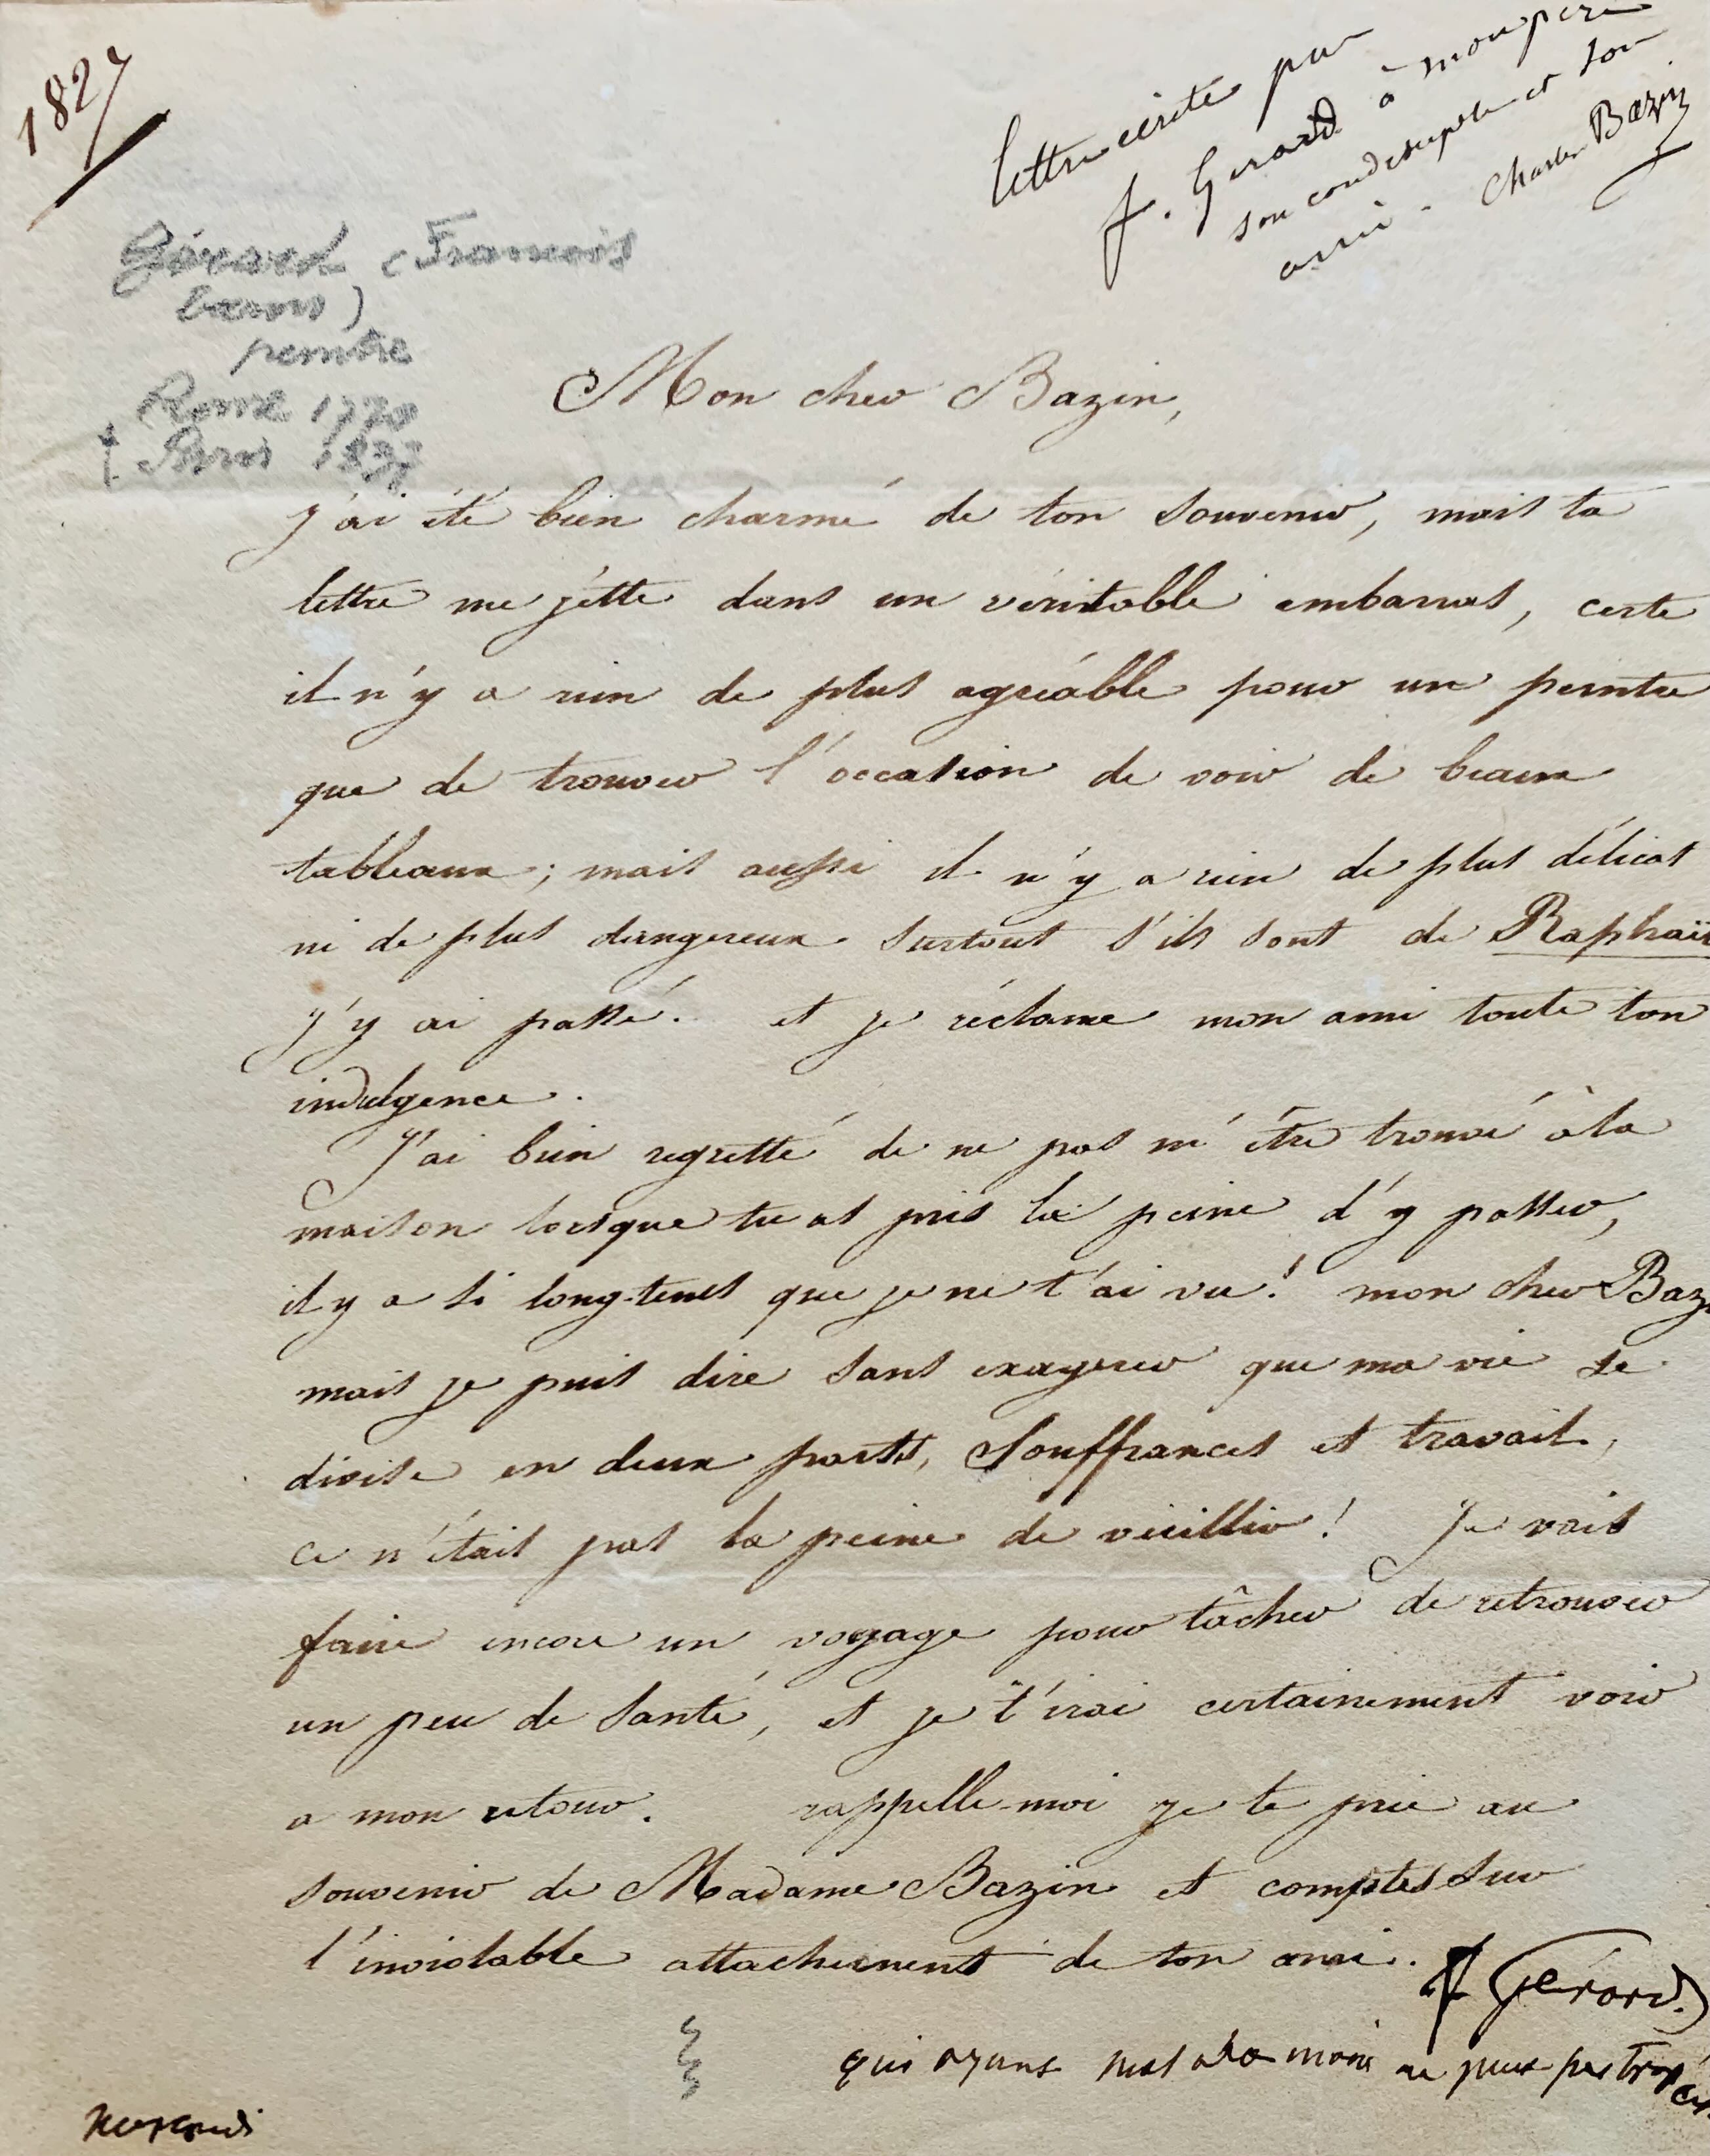 1827
lettre écrite par
f. Gerard à mon pere
son condisciple et son
ami. Charles Bazin
Gérard (François
baron)
peintre
Rome 1770
† Paris 1837
Mon cher Bazin,
j'ai été bien charmé de ton souvenir, mais ta
lettre me jétte dans un véritable embarras, certe
il n'y a rien de plus agréable pour un peintre
que de trouver l'occasion de voir de beaux
tableaux; mais aussi il n'y a rien de plus délicat
ni de plus dangereux surtout s'ils sont de Raphaë
j'y ai passé. et je réclame mon ami toute ton
indulgence.
J'ai bien regretté de ne pas m'être trouvé à la
maison lorsque tu as pris la peine d'y passer,
il y a si long-tems que je ne t'ai vu! mon cher Baz
mais je puis dire sans exagerer que ma vie se
divise en deux parts, Souffrances et travail,
ce n'était pas la peine de vieillir! Je vais
faire encore un voyage pour tâcher de retrouver
un peu de santé, et je t'irai certainement voir
a mon retour. rappelle-moi je te prie au
souvenir de Madame Bazin et comptes sur
l'inviolable attachement de ton ami.
f Gérard.
qui ayant mal à la main ne peut pas trop éc
mercredi